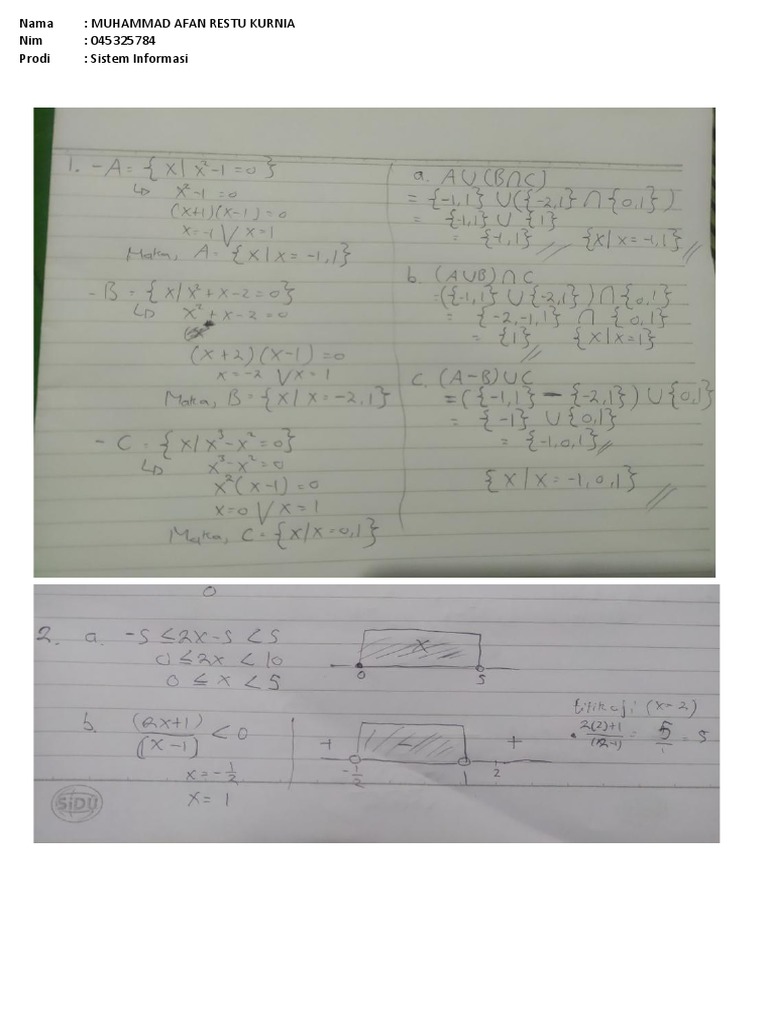 Nama : MUHAMMAD AFAN RESTU KURNIA
Nim : 045325784
Prodi : Sistem Informasi
1. - A = { x | x² - 1 = 0 }
↳ x² - 1 = 0
(x+1)(x-1) = 0
x = -1 ∨ x = 1
Maka, A = { x | x = -1, 1 }
- B = { x | x² + x - 2 = 0 }
↳ x² + x - 2 = 0
(x + 2) (x - 1) = 0
x = -2 ∨ x = 1
Maka, B = { x | x = -2, 1 }
- C = { x | x³ - x² = 0 }
↳ x³ - x² = 0
x² (x - 1) = 0
x = 0 ∨ x = 1
Maka, C = { x | x = 0, 1 }
a. A ∪ (B ∩ C)
= {-1,1} ∪ ({-2,1} ∩ {0,1})
= {-1,1} ∪ {1}
= {-1,1} // {x | x = -1,1} //
b. (A ∪ B) ∩ C
= ({-1,1} ∪ {-2,1}) ∩ {0,1}
= {-2,-1,1} ∩ {0,1}
= {1} // {x | x = 1}
c. (A - B) ∪ C
= ({-1,1} - {-2,1}) ∪ {0,1}
= {-1} ∪ {0,1}
= {-1,0,1} //
{x | x = -1, 0, 1} //
0
2. a. -5 ≤ 2x - 5 < 5
0 ≤ 2x < 10
0 ≤ x < 5
x
0 5
b. (2x+1)/(x-1) < 0
x = -1/2
x = 1
+ - +
-1/2 1 2
titik uji (x=2)
2(2)+1/(2-1) = 5/1 = 5
SiDU